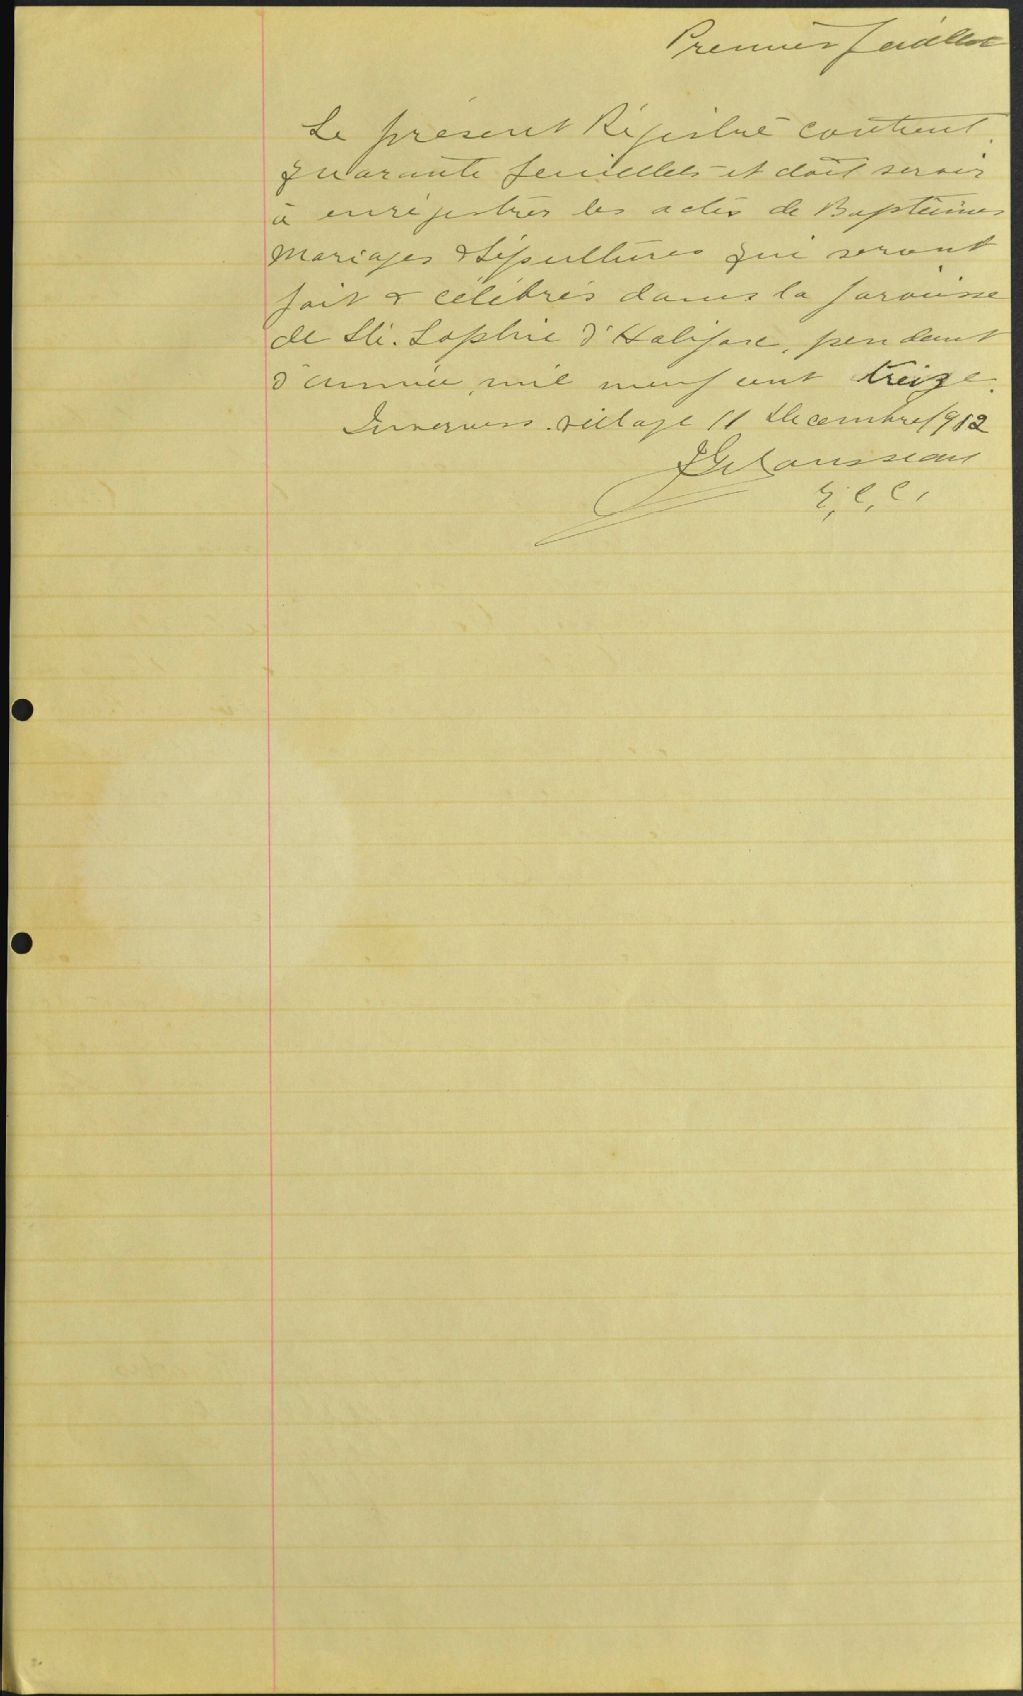 Premier feuillet
Le présent Régistre contient
quarante feuillets et doit servir
à enrégistrer les actes de Baptêmes
Mariages & Sépultures qui seront
fait & célébrés dans la paroisse
de Ste. Sophie d'Halifax, pendant
l'année mil neuf cent treize.
Inverness village 11 Decembre 1912
Rousseau
G, C, C,